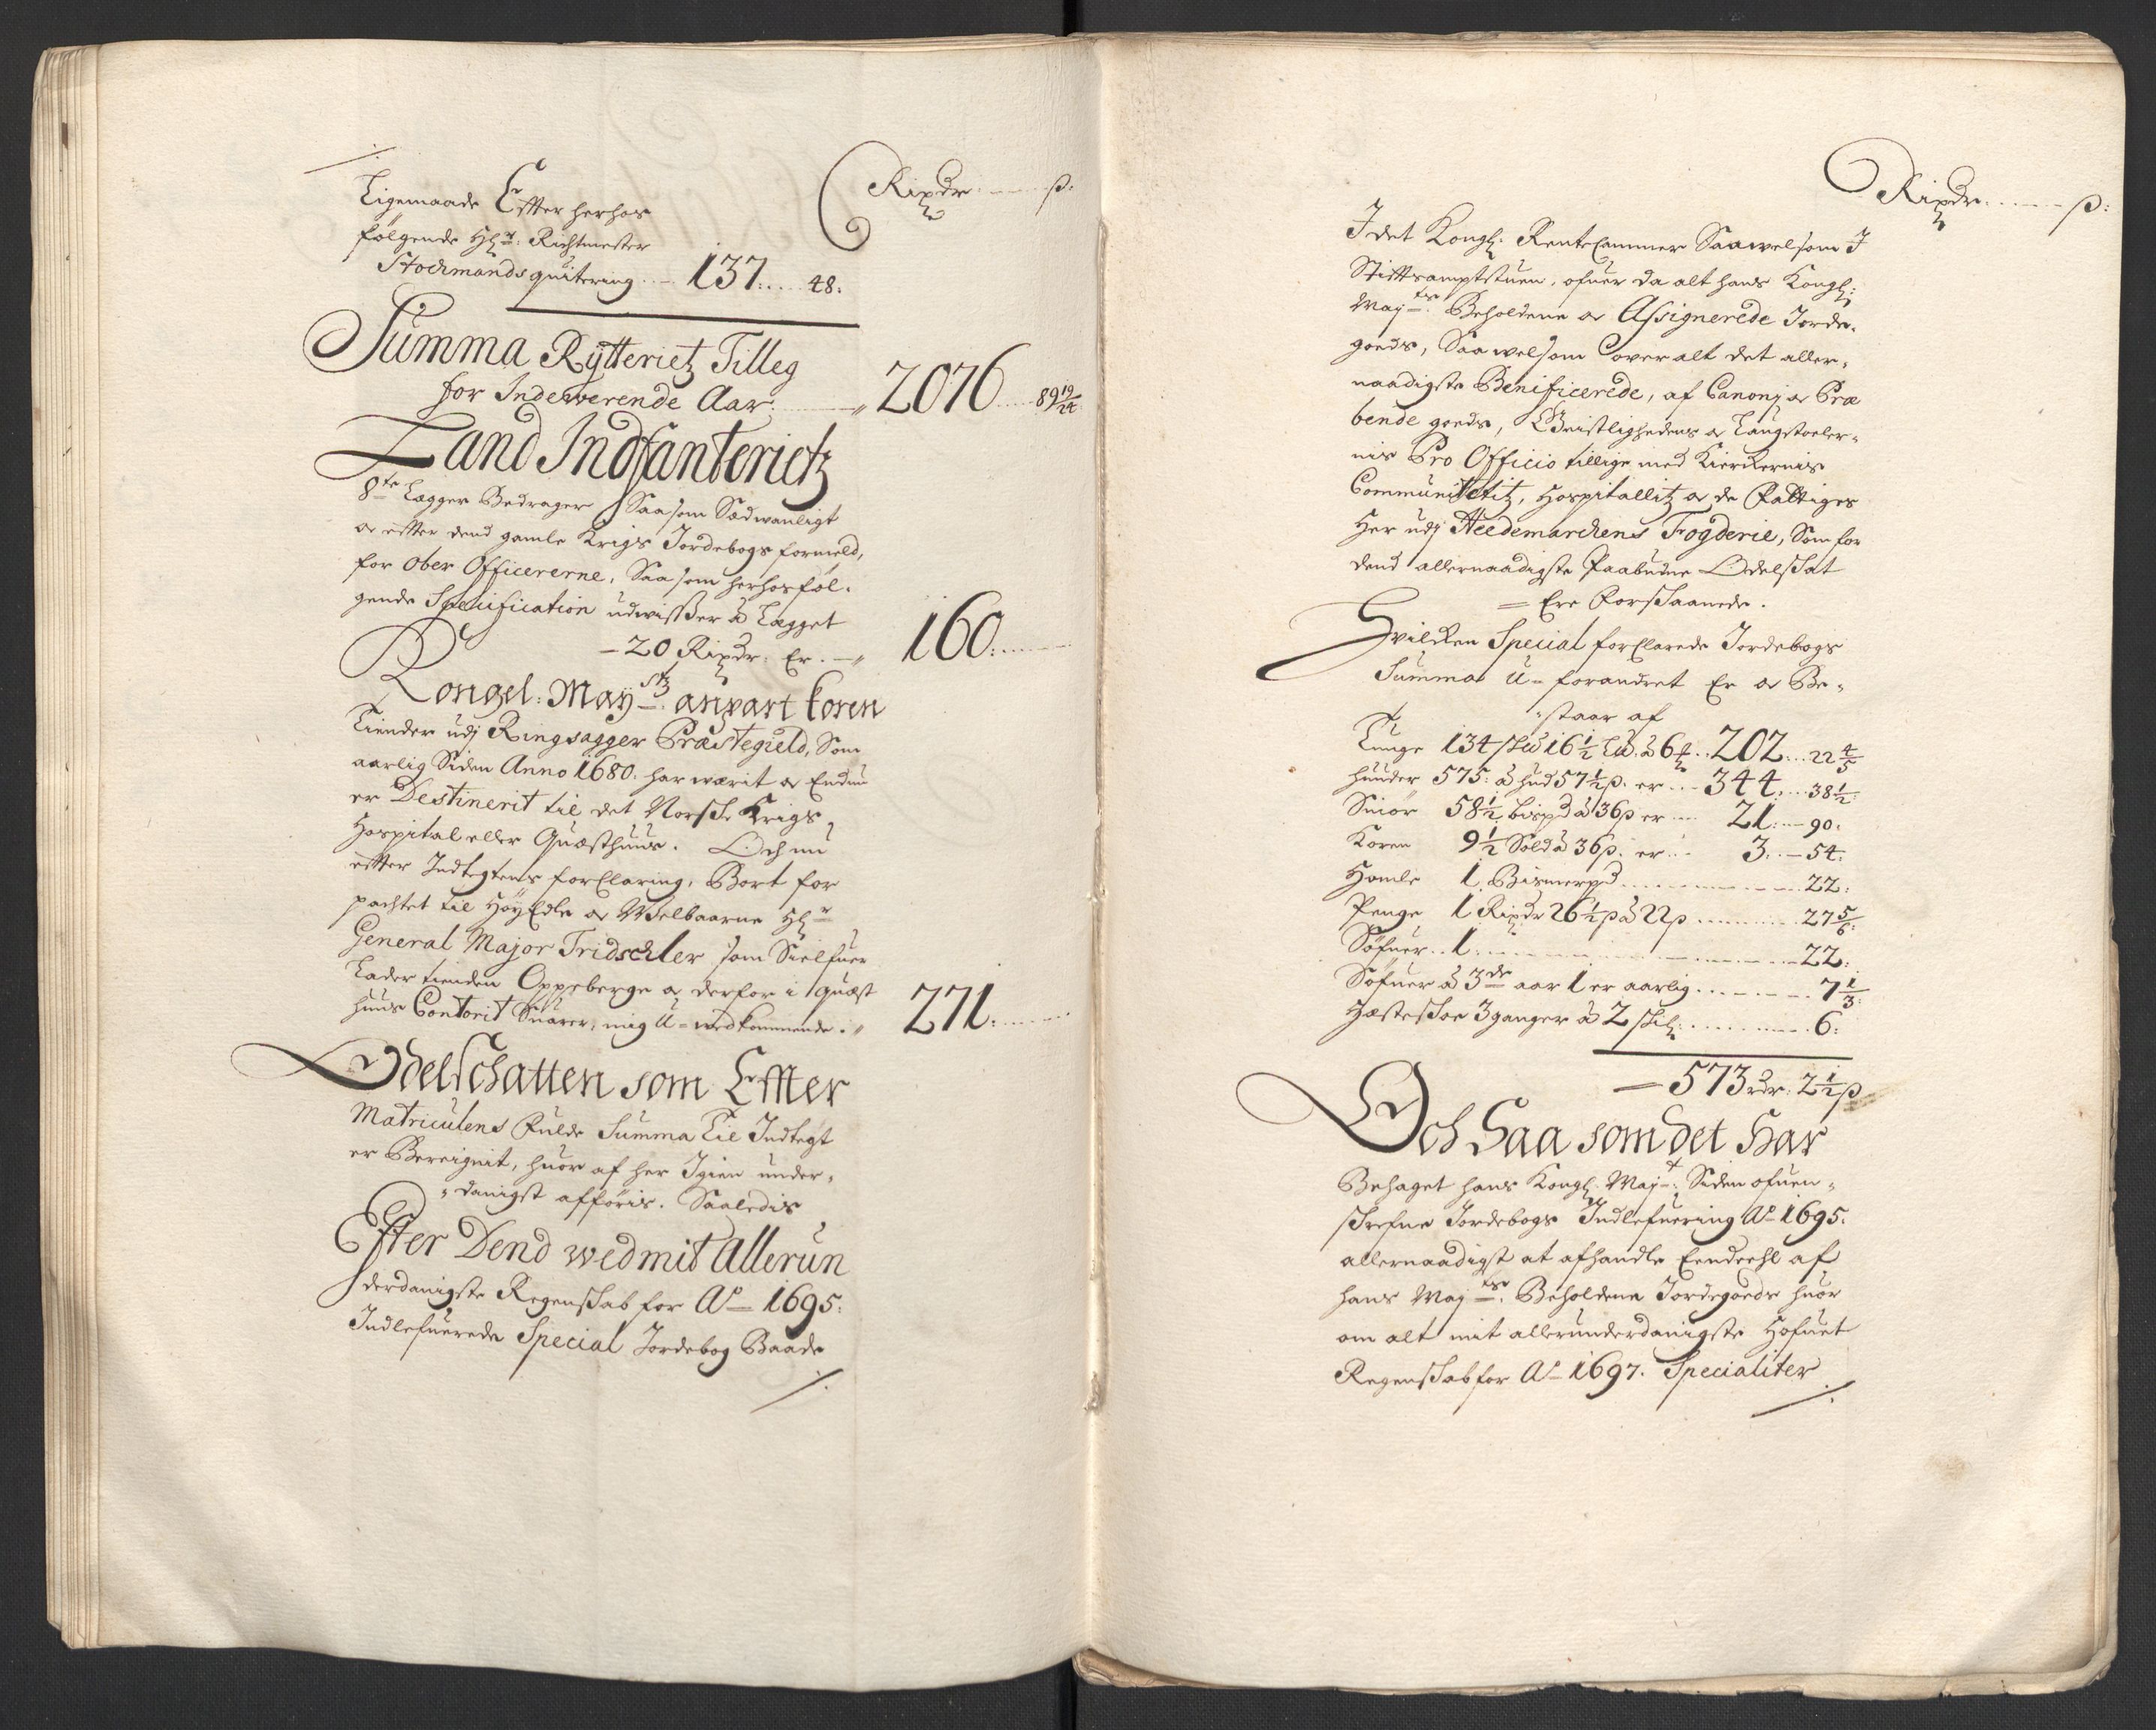 Rixdr ß:
Ligemaade Effter herhos
følgende Hr: Richtmester
Stochmands quitering 137: 48:
Summa Rytteriets Tilleg
for Indeværende Aar: 2076 89 19/24
Land Indfanteriets
8te Lægger Bedrager Saasom Sædwanligt
oc efter dend gamle Krigs Jordebogs formeld,
for Ober Officererne, Saasom herhosføl-
gende Specification udwisser à Legget
20 Rixdr. Er 160:
Kongel: Mayts anpart koren
Tiender udj Ringsagger Præstegield, Som
aarlig Siden Anno 1680. har wærit oc Endnu
er Destinerit til det Norsche Krigs
Hospital eller Quæsthuus. Och nu
efter Indtegtens forklaring, Bort for
pachtet til HøyEdle oc Welbaarne Hr
General Major Tridschler som Sielfuer
Lader tienden Oppeberge oc derfor i Quæst
huus Contorit Suarer, mig U-wedkommende 271:
Odelschatten som Effter
Matriculens Fulde Summa Til Indtegt
er Beregnit, huor af her Igien under-
danigst afføris. Saaledis
Efter Dend wed mit Allerun
derdanigste Regenskab for Ao 1695:
Indlefuerede Special Jordebog Baade
Rixdr ß:
I det Kongl: RenteCammer Saawelsom I
Stiftsamptstuen, ofuer da alt hans Kongl:
Mayts: Beholdene oc Assignerede Jorde-
goeds, Saawelsom over alt det aller-
naadigste Benificerede, af Canonj oc Præ
bende goeds, Geistlighedens oc Laugstoeler-
nis Pro Officio tillige med Kierkernis
Communitetitz, Hospitallitz oc de Fattiges
Her udj Heedemarchens Fogderie, Som for
dend allernaadigste Paabudne Odelskat
Ere Forskaanede.
Hvilken Special forklarede Jordebogs
Summa U-forandret Er oc Be-
staar af
Tunge 134 skd 16 1/2 Ld. à 6 202 22 4/5
Huuder 575: à hud 57 1/2 ß. er 344 38 1/2:
Smør 58 1/2 bispd à 36 ß er 21: 90:
Koren 9 1/2 Sold à 36 ß: er 3: 54:
Homle 1 Bismerpd 22:
Penge 1 Rixdr 26 1/2 ß à 22 ß 27 5/6:
Søfuer 1: 22:
Søfuer à 3de aar 1 er aarlig 7 1/3:
Hæstskoe 3 ganger à 2 skil: 6:
573 rdr: 2 1/2 ß
Och Saa som det Har
Behaget hans Kongl: Mayt: Siden ofuen-
skrefne Jordebogs Indlefuering Ao 1695.
allernaadigst at afhandle Eendeehl af
hans Mayts: Beholdene Jordegoeds huor
om alt mit allerunderdanigste Hofuet
Regenskab for Ao 1697. Specialiter